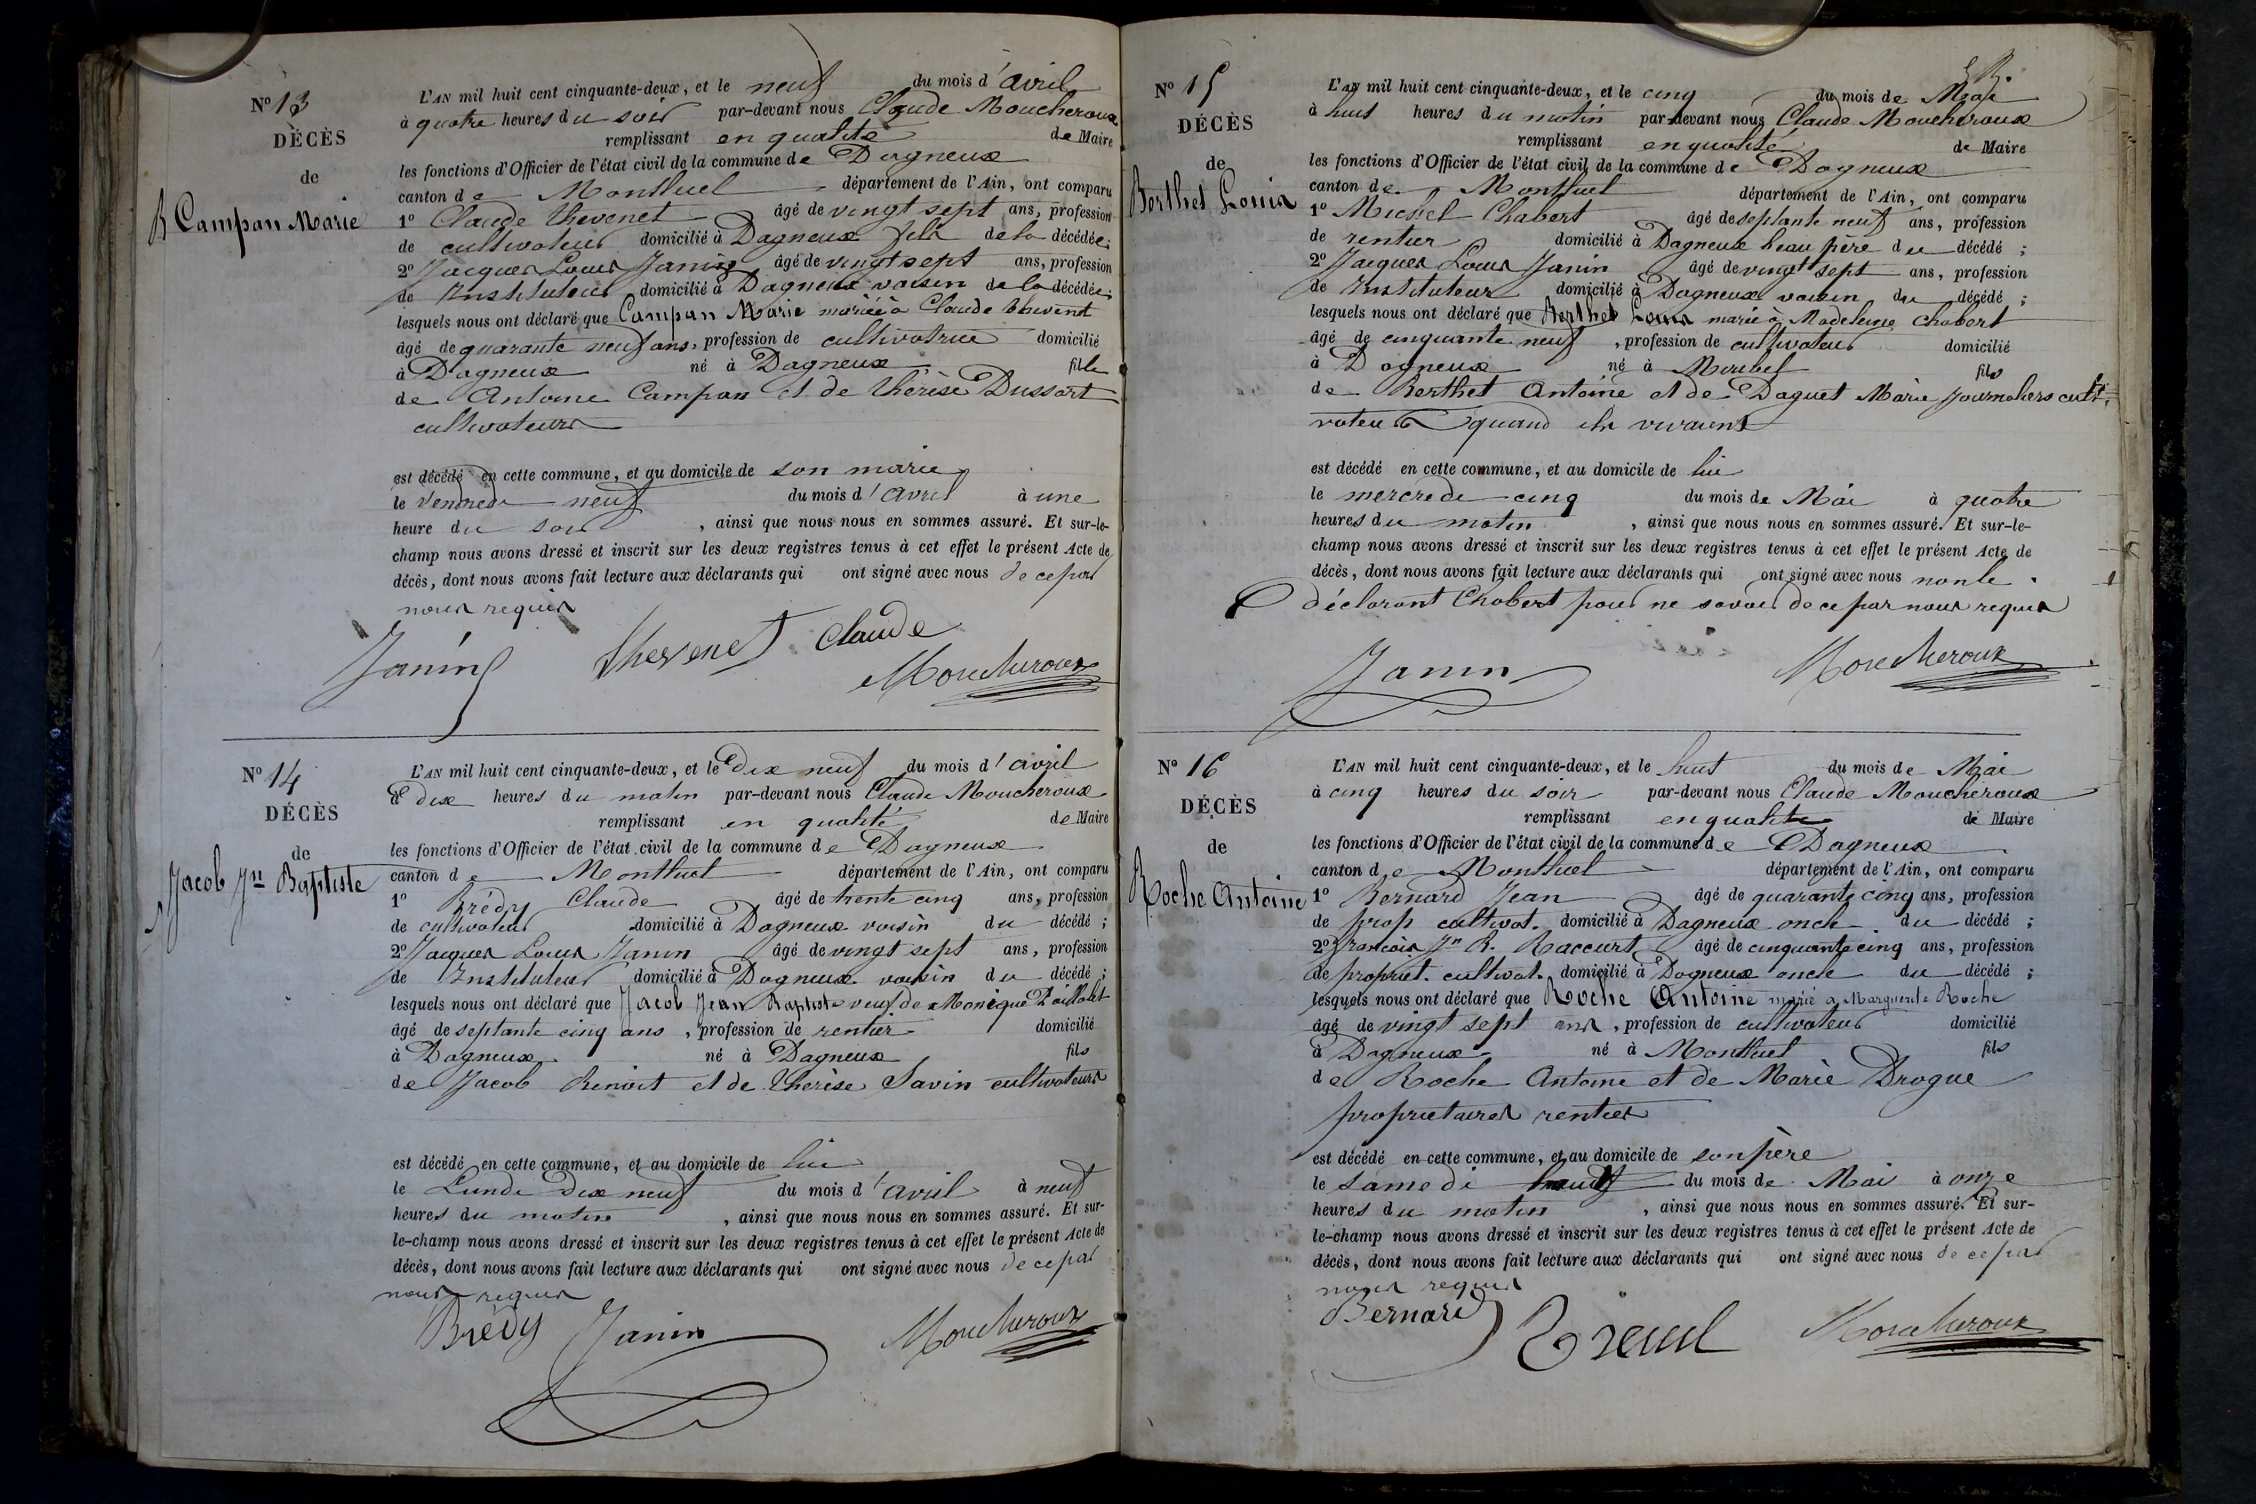 N° 13
DÉCÈS
de
Campan Marie
L'AN mil huit cent cinquante-deux, et le neuf du mois d'avril
à quatre heures du soir par-devant nous Claude Moucheroux
remplissant en qualité de Maire
les fonctions d'Officier de l'état civil de la commune de Dagneux
canton de Montluel département de l'Ain, ont comparu
1° Claude Thevenet âgé de vingt sept ans, profession
de cultivateur domicilié à Dagneux fils de la décédée;
2° Jacques Louis Janin âgé de vingt sept ans, profession
de Instituteur domicilié à Dagneux voisin de la décédée;
lesquels nous ont déclaré que Campan Marie mariée à Claude
âgé de quarante neuf ans, profession de cultivatrice domicilié
à Dagneux né à Dagneux fille
de Antoine Campan et de Thérèse Dussort
cultivateurs
est décédé en cette commune, et au domicile de son marie
le Vendredi neuf du mois d'avril à une
heure du soir, ainsi que nous nous en sommes assuré. Et sur-le-
champ nous avons dressé et inscrit sur les deux registres tenus à cet effet le présent Acte de
décès, dont nous avons fait lecture aux déclarants qui ont signé avec nous de ce par
nous requis
Janin Thevenet Claude
Moucheroux
N° 14
DÉCÈS
de
Jacob Jn Baptiste
L'AN mil huit cent cinquante-deux, et le dix neuf du mois d'avril
à dix heures du matin par-devant nous Claude Moucheroux
remplissant en qualité de Maire
les fonctions d'Officier de l'état civil de la commune de Dagneux
canton de Montluel département de l'Ain, ont comparu
1° Brédy Claude âgé de trente cinq ans, profession
de cultivateur domicilié à Dagneux voisin du décédé;
2° Jacques Louis Janin âgé de vingt sept ans, profession
de Instituteur domicilié à Dagneux voisin du décédé;
lesquels nous ont déclaré que Jacob Jean Baptiste veuf de Monique
âgé de septante cinq ans, profession de rentier domicilié
à Dagneux né à Dagneux fils
de Jacob Benoit et de Thérèse Savin cultivateurs
est décédé en cette commune, et au domicile de lui
le Lundi dix neuf du mois d'avril à neuf
heures du matin, ainsi que nous nous en sommes assuré. Et sur-
le-champ nous avons dressé et inscrit sur les deux registres tenus à cet effet le présent Acte de
décès, dont nous avons fait lecture aux déclarants qui ont signé avec nous de ce par
nous requis
Brédy Janin Moucheroux
N° 15
DÉCÈS
de
Berthet Louis
L'AN mil huit cent cinquante-deux, et le cinq du mois de Mai
à huit heures du matin par-devant nous Claude Moucheroux
remplissant en qualité de Maire
les fonctions d'Officier de l'état civil de la commune de Dagneux
canton de Montluel département de l'Ain, ont comparu
1° Michel Chabert âgé de septante neuf ans, profession
de rentier domicilié à Dagneux beau père du décédé;
2° Jacques Louis Janin âgé de vingt sept ans, profession
de Instituteur domicilié à Dagneux voisin du décédé;
lesquels nous ont déclaré que Berthet Louis marié à Madeleine Chabert
âgé de cinquante neuf, profession de cultivateur domicilié
à Dagneux né à fils
de Berthet Antoine et de Daguet Marie journaliers culti-
vateurs quand ils vivaient
est décédé en cette commune, et au domicile de lui
le mercredi cinq du mois de Mai à quatre
heures du matin, ainsi que nous nous en sommes assuré. Et sur-le-
champ nous avons dressé et inscrit sur les deux registres tenus à cet effet le présent Acte de
décès, dont nous avons fait lecture aux déclarants qui ont signé avec nous non le
déclarant Chabert pour ne savoir de ce par nous requis
Janin Moucheroux
N° 16
DÉCÈS
de
Roche Antoine
L'AN mil huit cent cinquante-deux, et le huit du mois de Mai
à cinq heures du soir par-devant nous Claude Moucheroux
remplissant en qualité de Maire
les fonctions d'Officier de l'état civil de la commune de Dagneux
canton de Montluel département de l'Ain, ont comparu
1° Bernard Jean âgé de quarante cinq ans, profession
de prop cultivat. domicilié à Dagneux oncle du décédé;
2° François Jn B. Raccurt âgé de cinquante cinq ans, profession
de propriét. cultivat. domicilié à Dagneux oncle du décédé;
lesquels nous ont déclaré que Roche Antoine marié a Marguerite Roche
âgé de vingt sept ans, profession de cultivateur domicilié
à Dagneux né à Montluel fils
de Roche Antoine et de Marie Drogue
propriétaires rentiers
est décédé en cette commune, et au domicile de son père
le samedi huit du mois de Mai à onze
heures du matin, ainsi que nous nous en sommes assuré. Et sur-
le-champ nous avons dressé et inscrit sur les deux registres tenus à cet effet le présent Acte de
décès, dont nous avons fait lecture aux déclarants qui ont signé avec nous de ce par
nous requis
Bernard Moucheroux